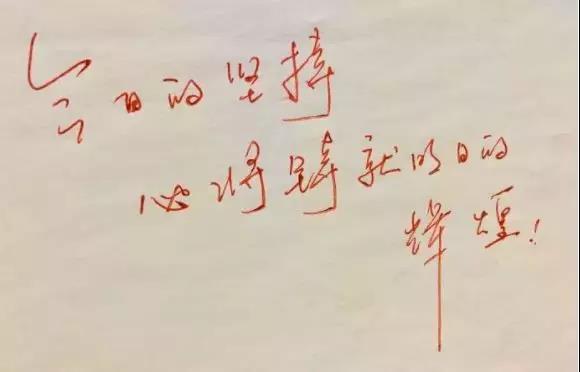 今日的坚持
必将铸就明日的
辉煌！